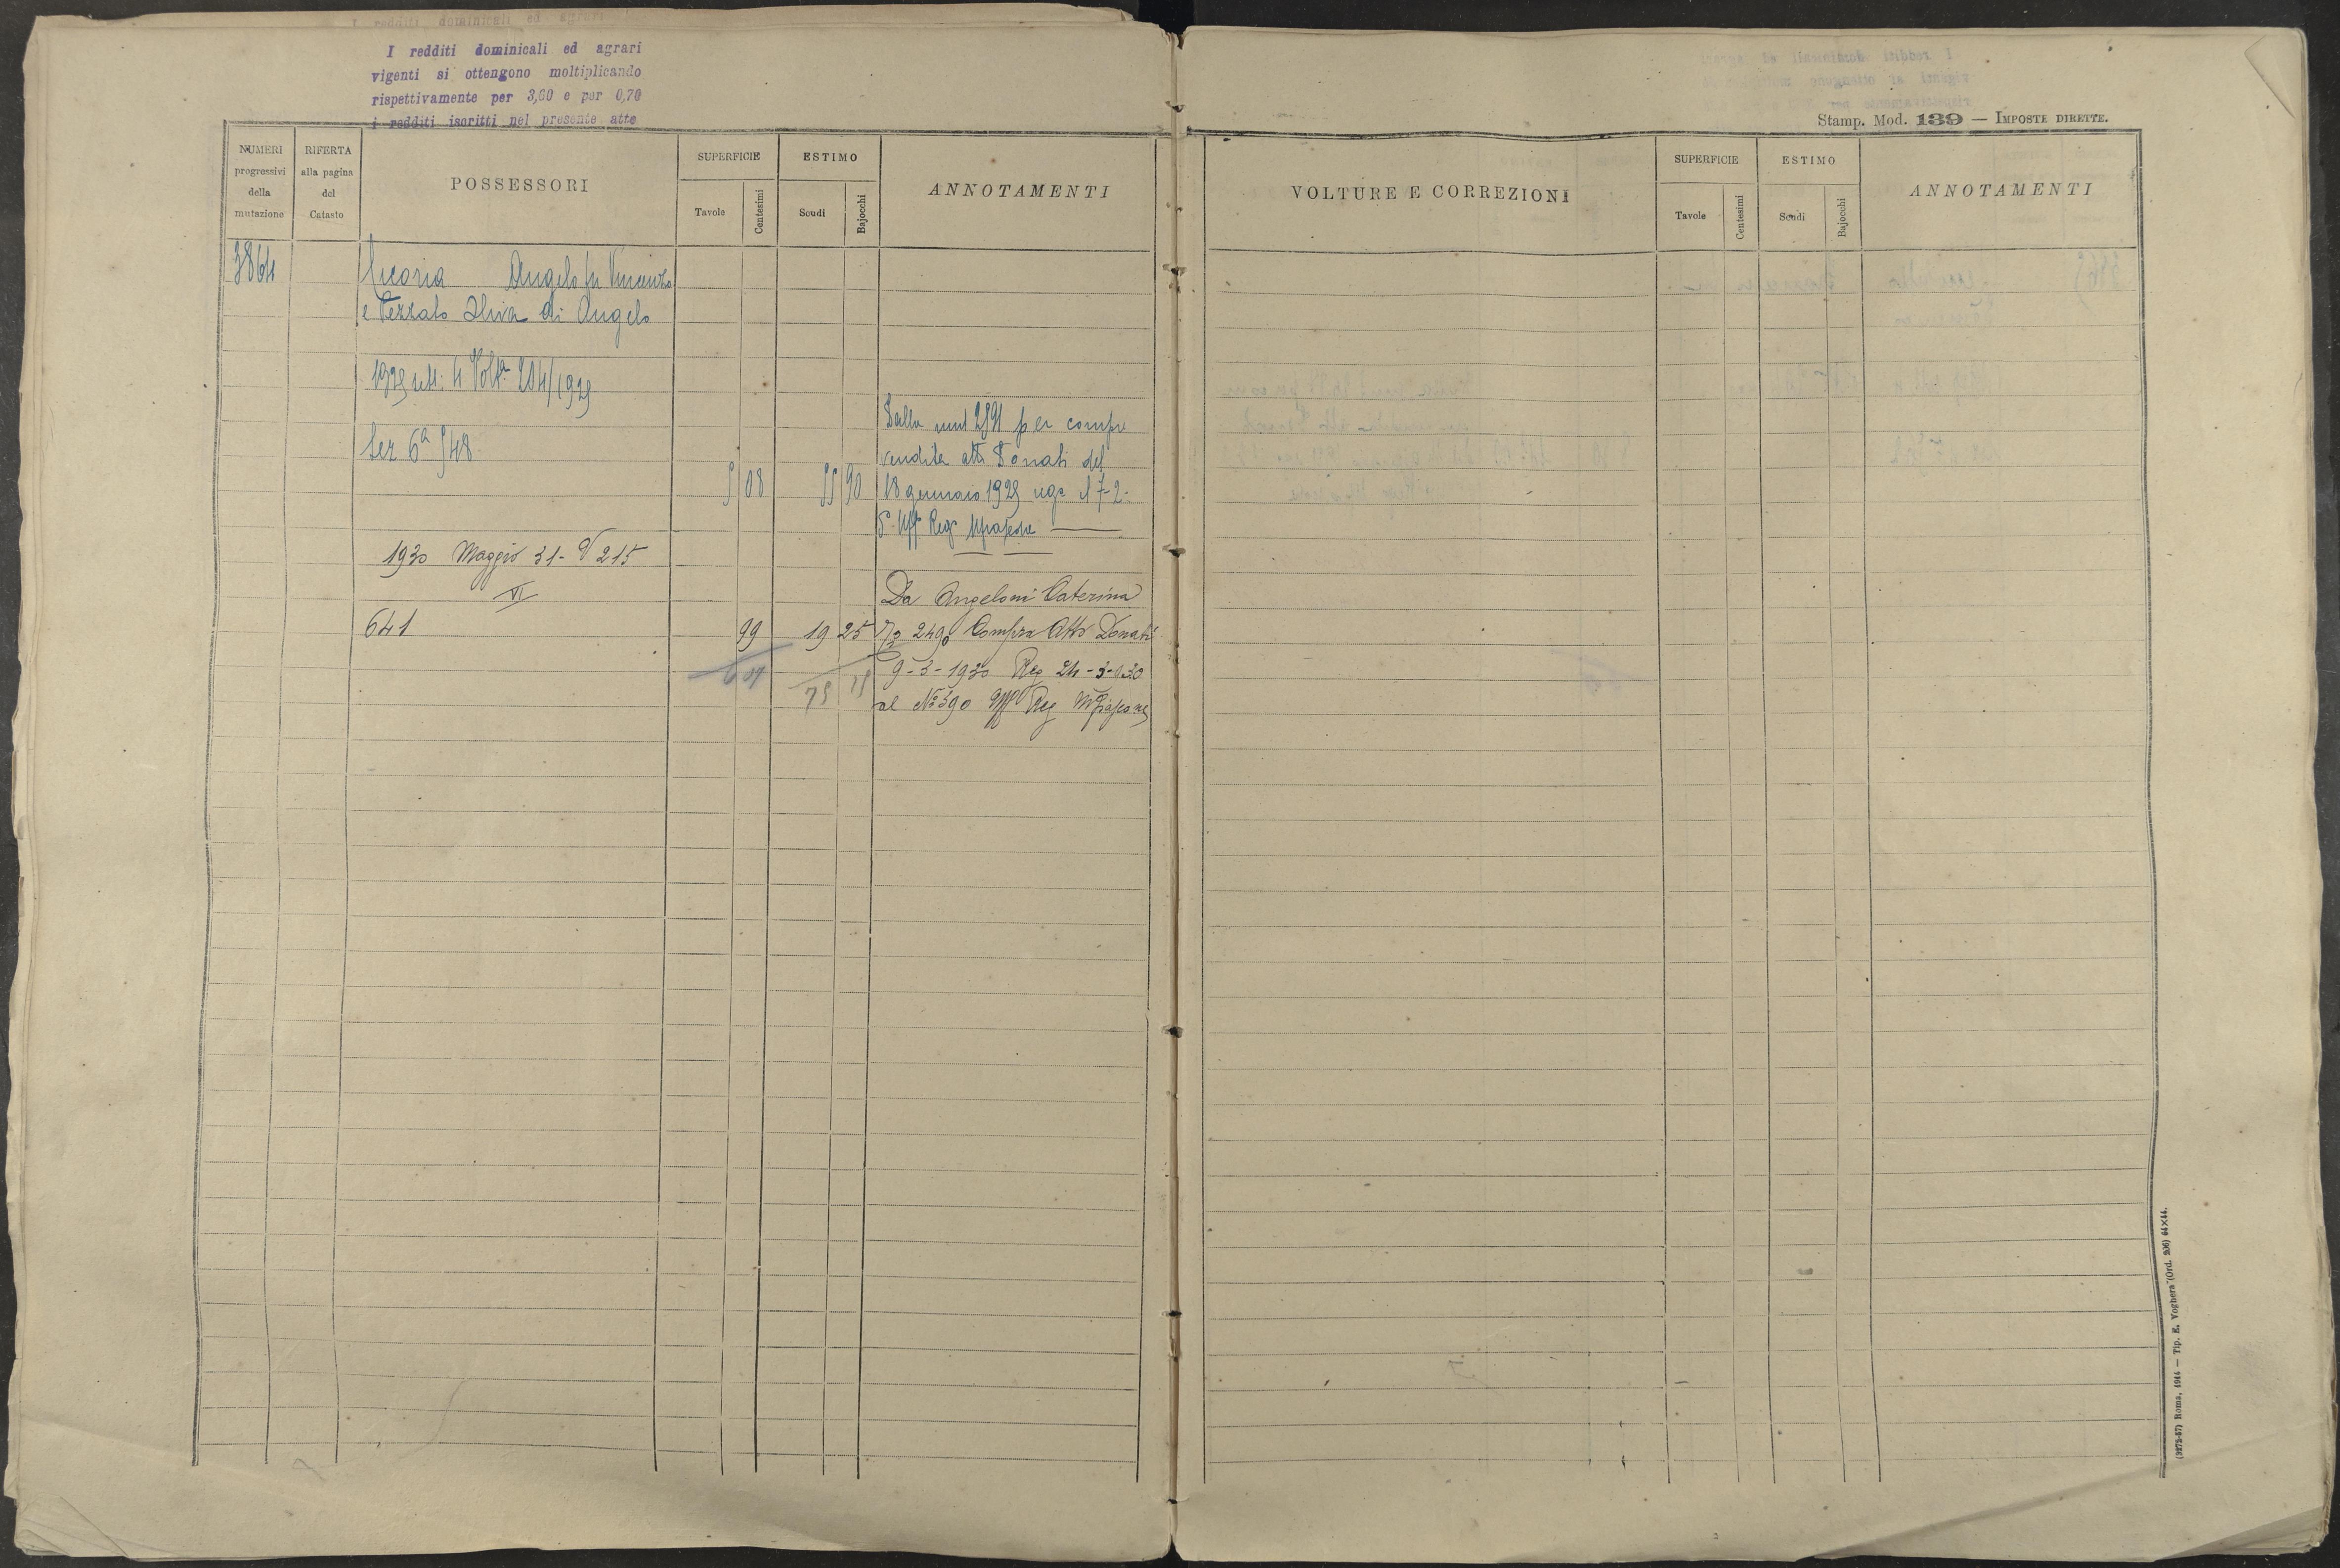 I redditi dominicali ed agrari
vigenti si ottengono moltiplicando
rispettivamente per 3,60 e per 0,70
i redditi iscritti nel presente atto
NUMERI progressivi della mutazione
RIFERTA alla pagina del Catasto
POSSESSORI
SUPERFICIE
Tavole
Centesimi
ESTIMO
Scudi
Bajocchi
ANNOTAMENTI
3864
Angelo fu Vincenzo
e di Angelo
204/1929
Ser 6ª 548
Dalla 2591 per compra
vendita atti Donati del
5 08 55 90 18 gennaio 1929 7-2-
Reg
1930 Maggio 31 - V 215
VI
Da Angeloni Caterina
641 99 19 25 2490 Compra Atto Donati
6 07 75 15 9-3-1930 Reg 24-3-930
al Nº 590 Uff Reg
Stamp. Mod. 139 — IMPOSTE DIRETTE.
VOLTURE E CORREZIONI
SUPERFICIE
Tavole
Centesimi
ESTIMO
Scudi
Bajocchi
ANNOTAMENTI
(3272-57) Roma, 1914 — Tip. E. Voghera (Ord. 206) 64×44.